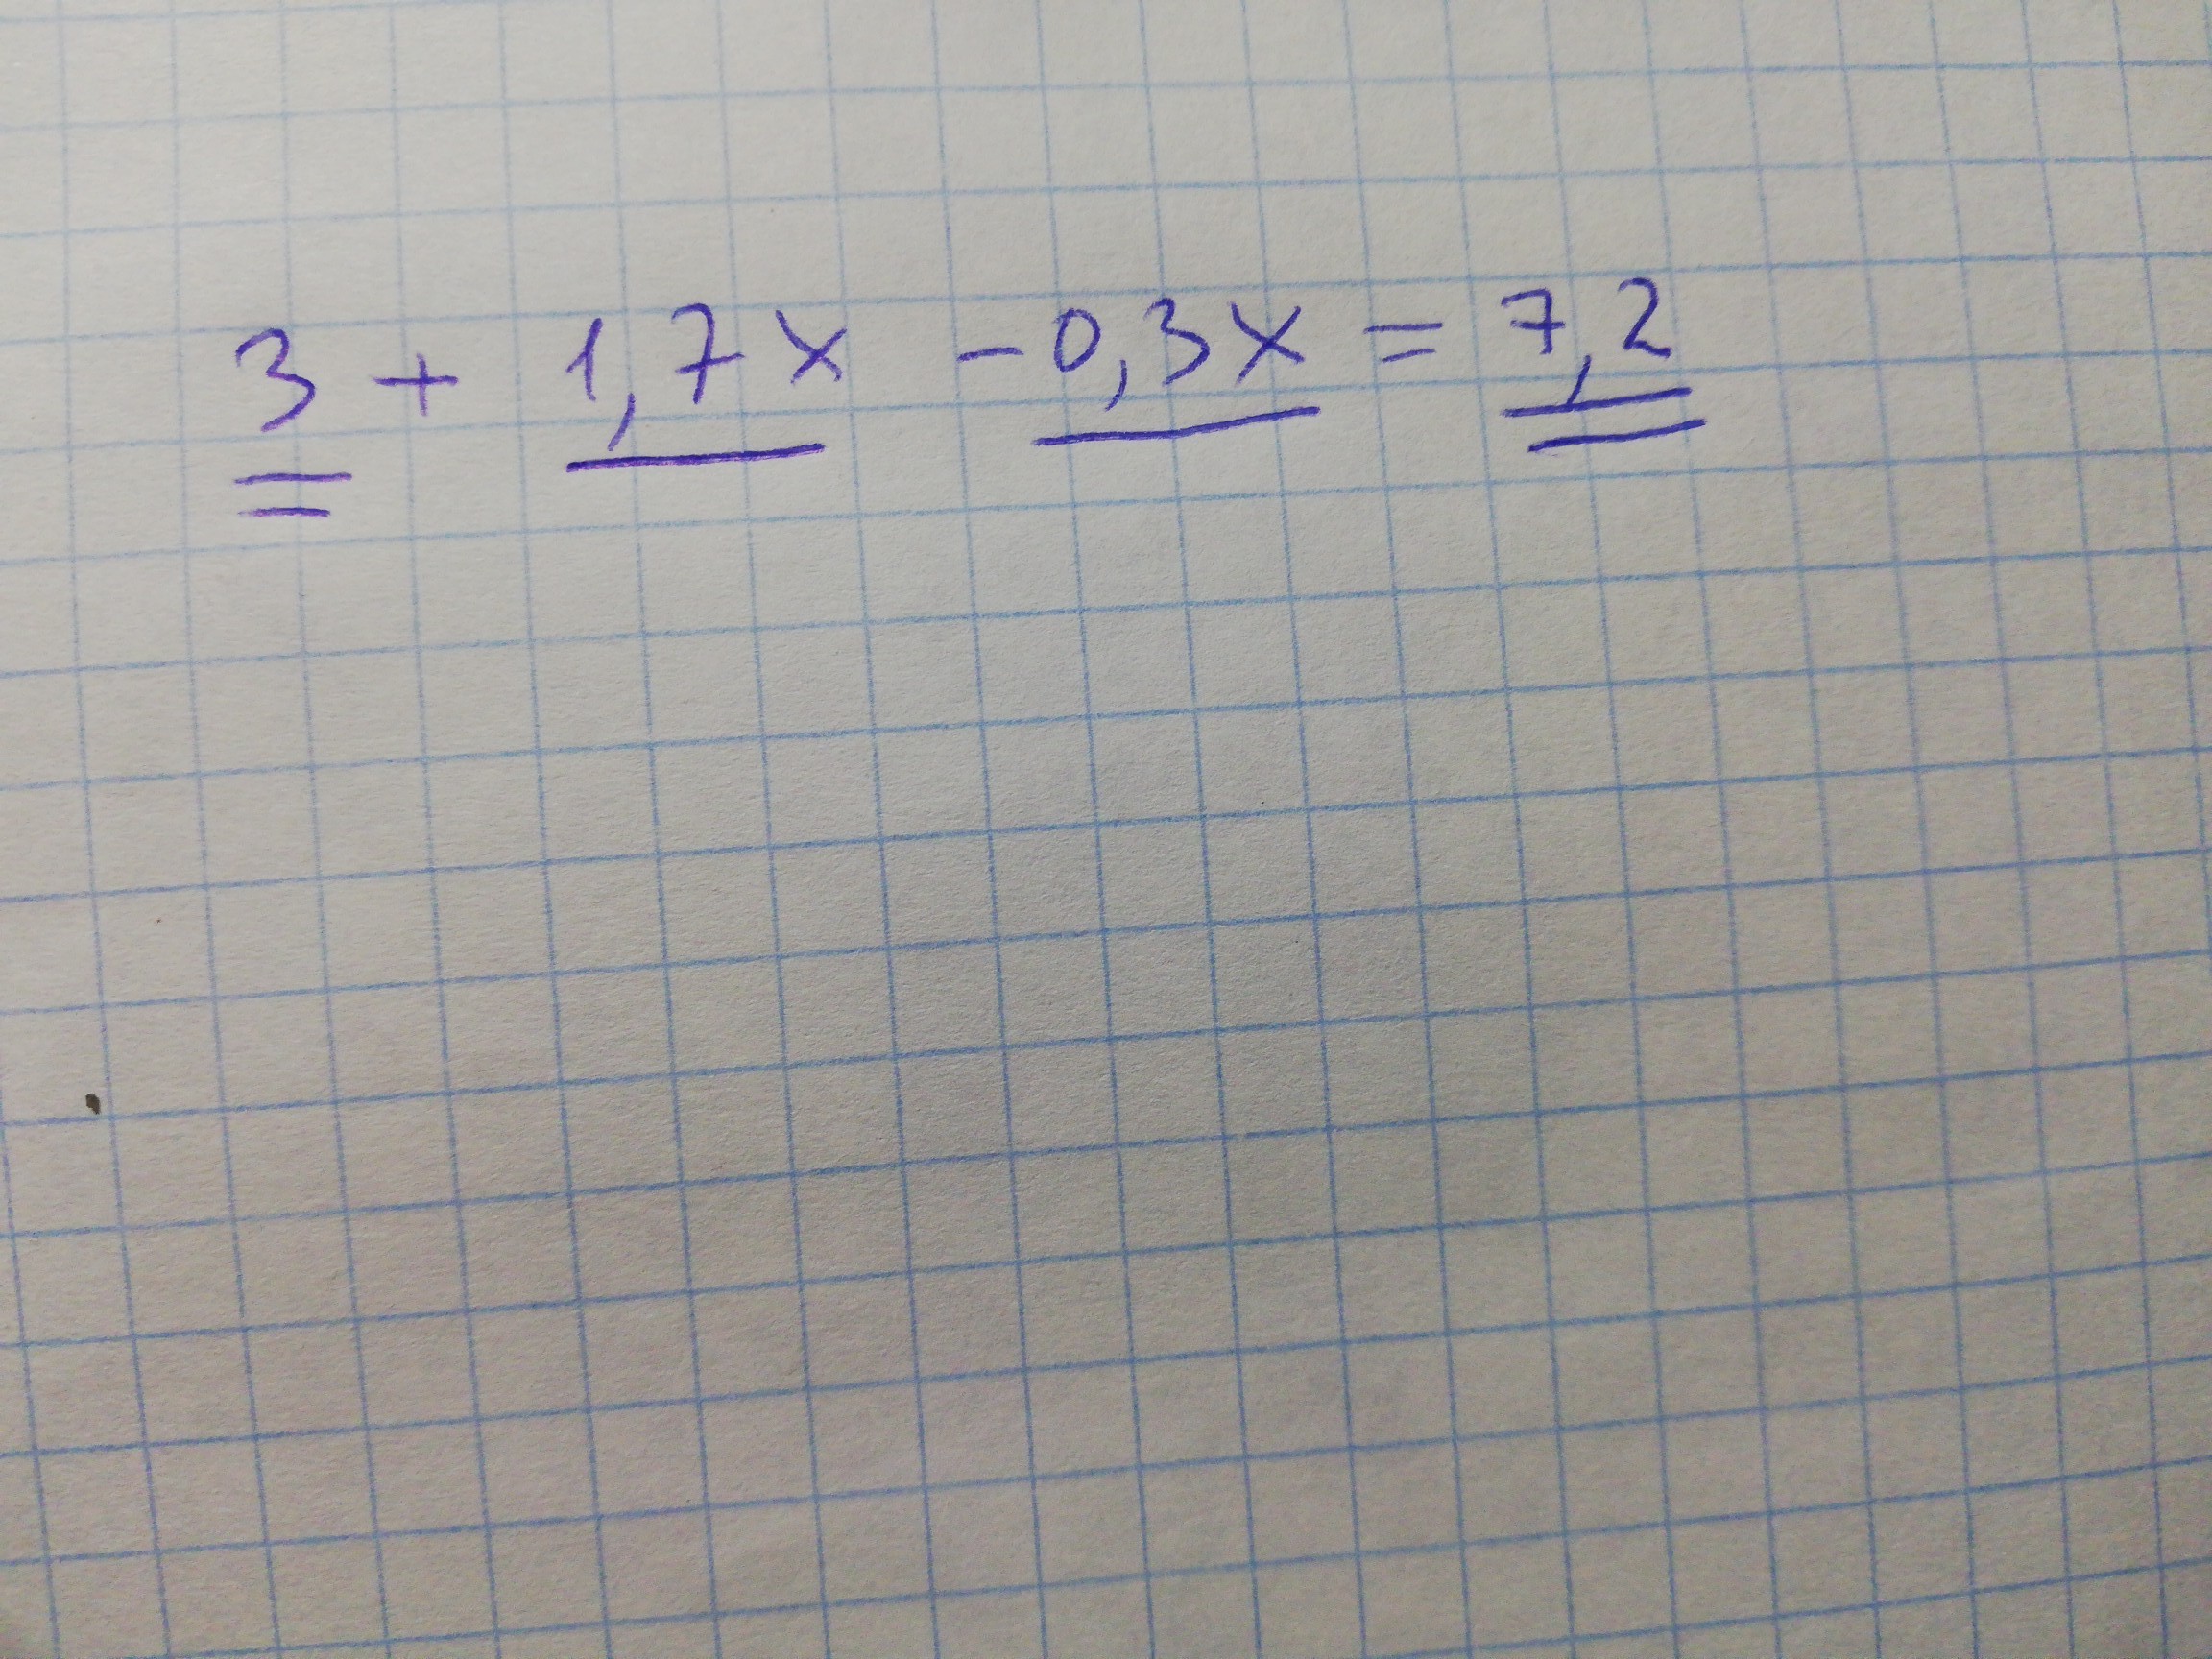 3 + 1,7x - 0,3x = 7,2